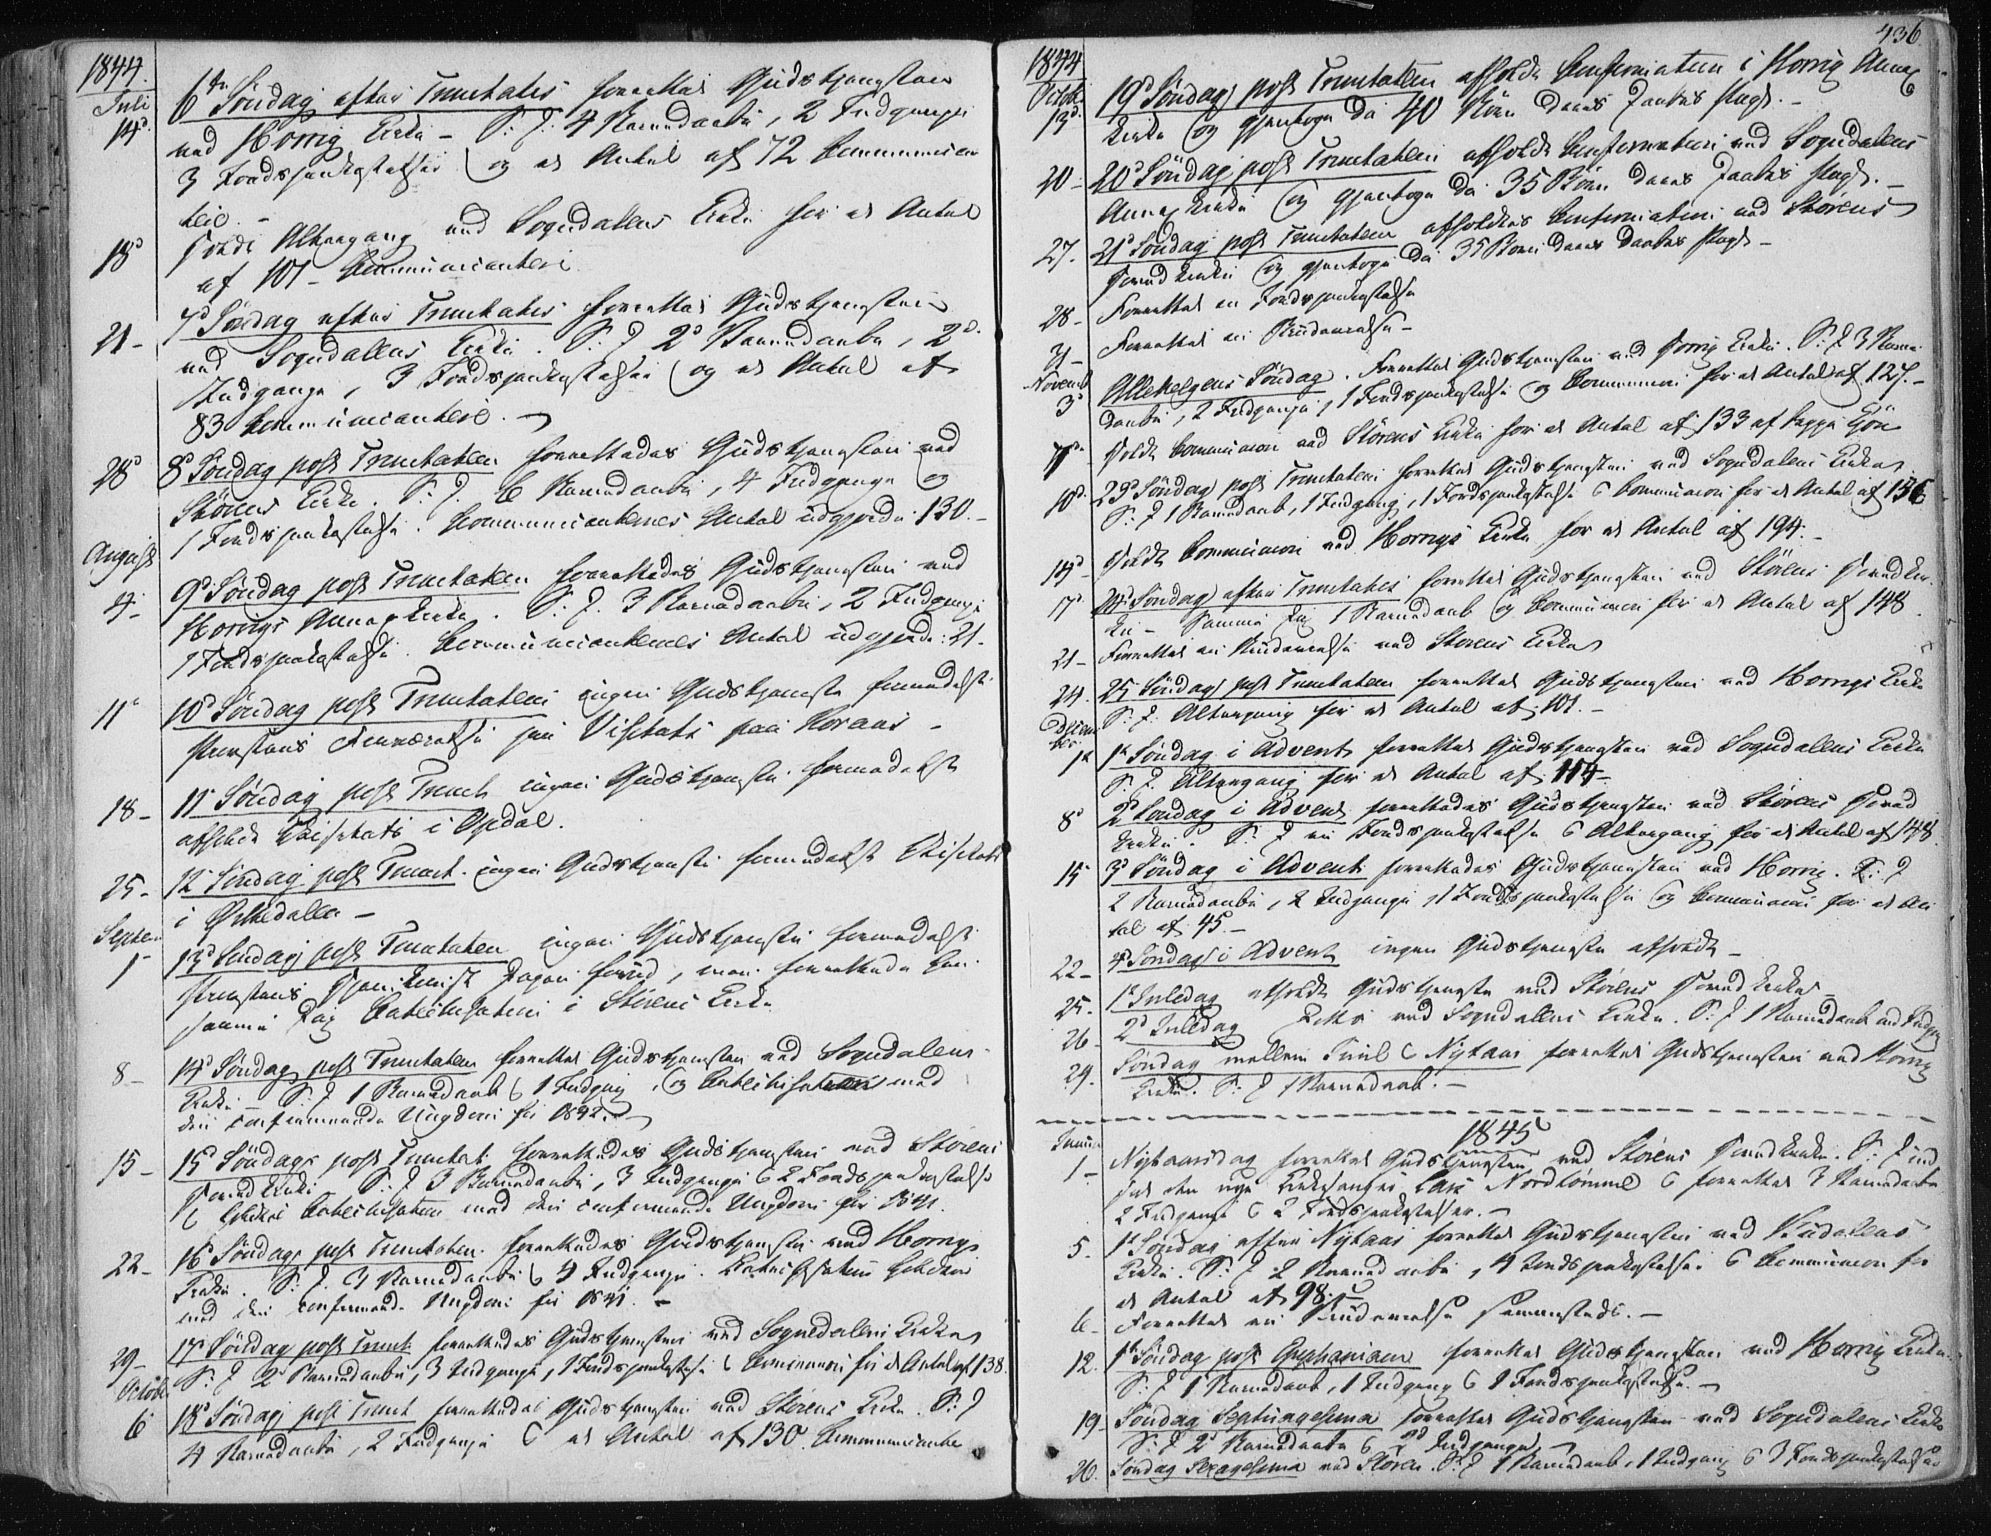 1844.
Juli
14d 6te Söndag efter Trinitatis forrettes Gudstjenesten
ved Horrig Kirke – S: D: 4 Barnedaabe, 2 Indgange
3 Jordspaakastelser og et Antal af 72 Communican
tere. –
18d Holdt Altergang ved Sogndalens Kirke for et Antal
af 101 – Communicantere
21 – 7d Söndag efter Trinitatis forrettes Gudstjenesten
ved Sogndalens Kirke. S: D 2d Barnedaabe, 2d.
Indgange, 3 Jordspaakastelser og et Antal af
83 Communicantere. –
28d 8d Söndag post Trinitatem forrettedes Gudstjenesten ved
Störens Kirke. S: D. 6 Barnedaabe, 4 Indgange og
1 Jordspaakastelse. Communicanternes Antal udgjorde: 130. –
August
4. 9d Söndag post Trinitatem forrettedes Gudstjenesten ved
Horrigs Annexkirke. S: D. 3 Barnedaabe, 2 Indgange
1 Jordspaakastelse. Communicanternes Antal udgjorde: 21.
11d 10d Söndag post Trinitatem ingen Gudstjeneste formedelst
Provstens Fraværelse paa Visitats paa Röraas –
18 – 11d Söndag post Trinit ingen Gudstjeneste formedelst
afholdt Visitats i Opdal.
25 – 12 Söndag post Trinit. ingen Gudstjeneste formedelst Visitats
i Ørkedalen –
Septem
1 – 13d Söndag post Trinitatem ingen Gudstjeneste formedelst
Provstens Hjemkomst Dagen forud, men forrettede Han
samme Dag Catechisation i Störens Kirke
8 – 14d Söndag post Trinitatem forrettes Gudstjenesten ved Sogndalens
Kirke – S: D 1 Barnedaab & 1 Indgang, og Catechisation med
den confirmerede Ungdom for 1842.
15 – 15d Söndag post Trinitat: forrettedes Gudstjenesten ved Störens
Hovedkirke S: D 3 Barnedaabe, 3 Indgange & 2 Jordspaakastelse
& holdtes Catechisation med den confirmerede Ungdom for 1841.
22 – 16d Söndag post Trinitatem forrettedes Gudstjenesten ved Horrigs
Kirke. S: D. 3 Barnedaabe & 4 Indgange. Catechisation holdtes
med den confirmerede Ungdom for 1841. –
29 – 17d Söndag post Trinit. forrettedes Gudstjenesten ved Sognedalens Kirke
S: D 2 Barnedaabe, 3 Indgange, 1 Jordspaakastelse & Communion for et Antal af 138.
October
6 18d Söndag post Trinit forrettedes Gudstjenesten ved Störens Kirke. S: D
4 Barnedaabe, 2 Indgange & et Antal af 130 Communicantere
436.
1844
Octob.
13d 19d Söndag post Trinitatem afholdt Confirmation i Horrig Annex
Kirke og gjentoge da 40 Börn deres Daabes Pagt. –
20 – 20d Söndag post Trinitatem afholdt Confirmation ved Sogndalens
Annex Kirke og gjentoge da 35 Börn deres Daabes Pagt. –
27. 21d Söndag post Trinitatem afholdtes Confirmation ved Störens
Hovedkirke og gjentoge da 35 Börn deres Daabes Pagt –
28 – Forrettet en Jordspaakastelse
Forrettet en Brudevielse –
Novemb
3d Allehelgens Söndag. Forrettet Gudstjenesten ved Horrig Kirke. S: D 3 Barne
daabe, 2 Indgange, 1 Jordspaakastelse og Communion for et Antal af 127. –
Holdt Communion ved Störens Kirke for et Antal af 133
10d. 23d Söndag post Trinitatem forrettet Gudstjenesten ved Sogndalens Kirke
S: D 1 Barnedaab, 1 Indgang, 1 Jordspaakastelse & Communion for et Antal af 136
Holdt Communion ved Horrigs Kirke for et Antal af 194. –
17d. 24d Söndag efter Trinitatis forrettet Gudstjenesten ved Störens Hovedkir
ke – Samme Dag 1 Barnedaab og Communion for et Antal af 148
21 – Forrettet en Brudevielse ved Störens Kirke
24. 25 Söndag post Trinitatem forrettet Gudstjenesten ved Horrigs Kirke
S: D. Altergang for et Antal af 101. –
Decem
ber.
1d 1d Söndag i Advent forrettet Gudstjenesten ved Sogndalens Kirke
S: D. Altergang for et Antal af 114 –
8d 2d Söndag i Advent forrettedes Gudstjenesten ved Störens Hoved
kirke. S: D en Jordspaakastelse & Altergang for et Antal af 148.
15 3d Söndag i Advent forrettedes Gudstjenesten ved Horrig. S: D
2 Barnedaabe, 2 Indgange, 1 Jordspaakastelse og Communion for et An
tal af 45. –
22 – 4d Söndag i Advent ingen Gudstjeneste afholdt –
25. 1d Juledag afholdt Gudstjeneste ved Störens Hovedkirke
26 – 2d Juledag Ditto ved Sogndalens Kirke. S: D 1 Barnedaab
29. Söndag mellem Juul & Nytaar forrettet Gudstjenesten ved Horrig
Kirke. S: D 1 Barnedaab. –
1845
Janua
1 – Nytaarsdag forrettet Gudstjenesten ved Störens Hovedkirke. S: D ind
den nye Kirkesanger Lars Nordtömme & forrettet 3 Barnedaabe
2 Indgange & 2 Jordspaakastelser. –
5. 1d Söndag efter Nytaar forrettet Gudstjenesten ved
Kirke. S: D 2 Barnedaabe, 4 Jordspaakastelser & Communion for
et Antal af 98. –
6 – Forrettet en Brudevielse sammesteds. –
12. 1d Söndag post Epiphaniam forrettet Gudstjenesten ved Horrig Kirke.
S: D 1 Barnedaab, 1 Indgang & 1 Jordspaakastelse. –
19 – Söndag Septuagesima forrettet Gudstjenesten ved Sogndalens Kirke
S: D 2d Barnedaabe & 2d Indgange –
26. Söndag Sexagesima ved Stören. S: D 1 Barnedaab, 1 Indgang & 3 Jordspaakastelser